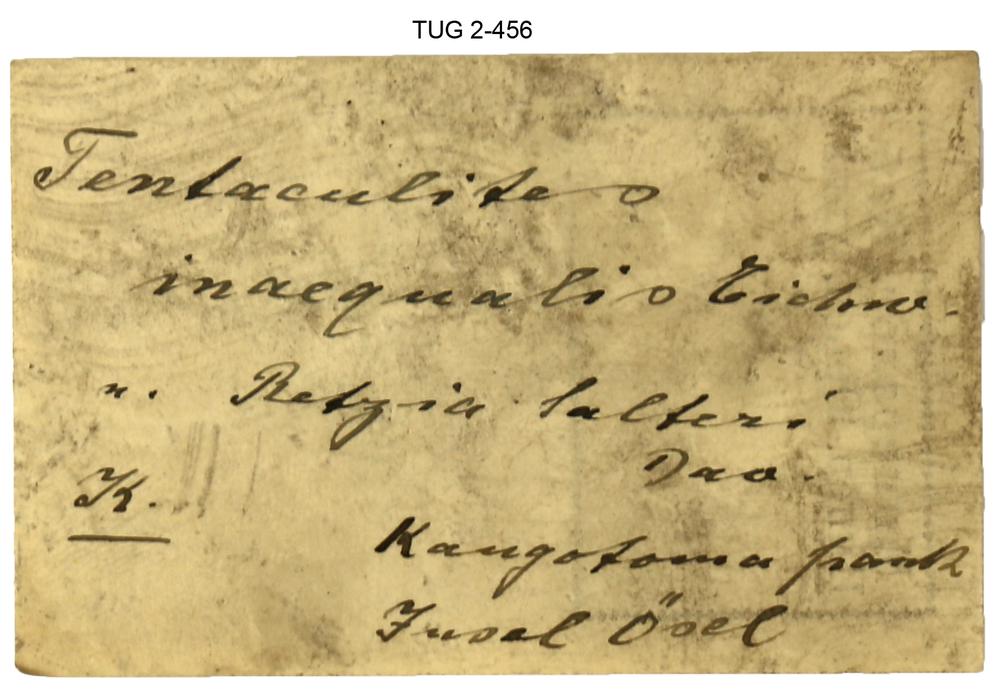 TUG 2-456
Tentaculites
inaequalis Eichw.
u. Retzia Salteri
Dav.
K.
Kaugotoma pank
Insel Ösel